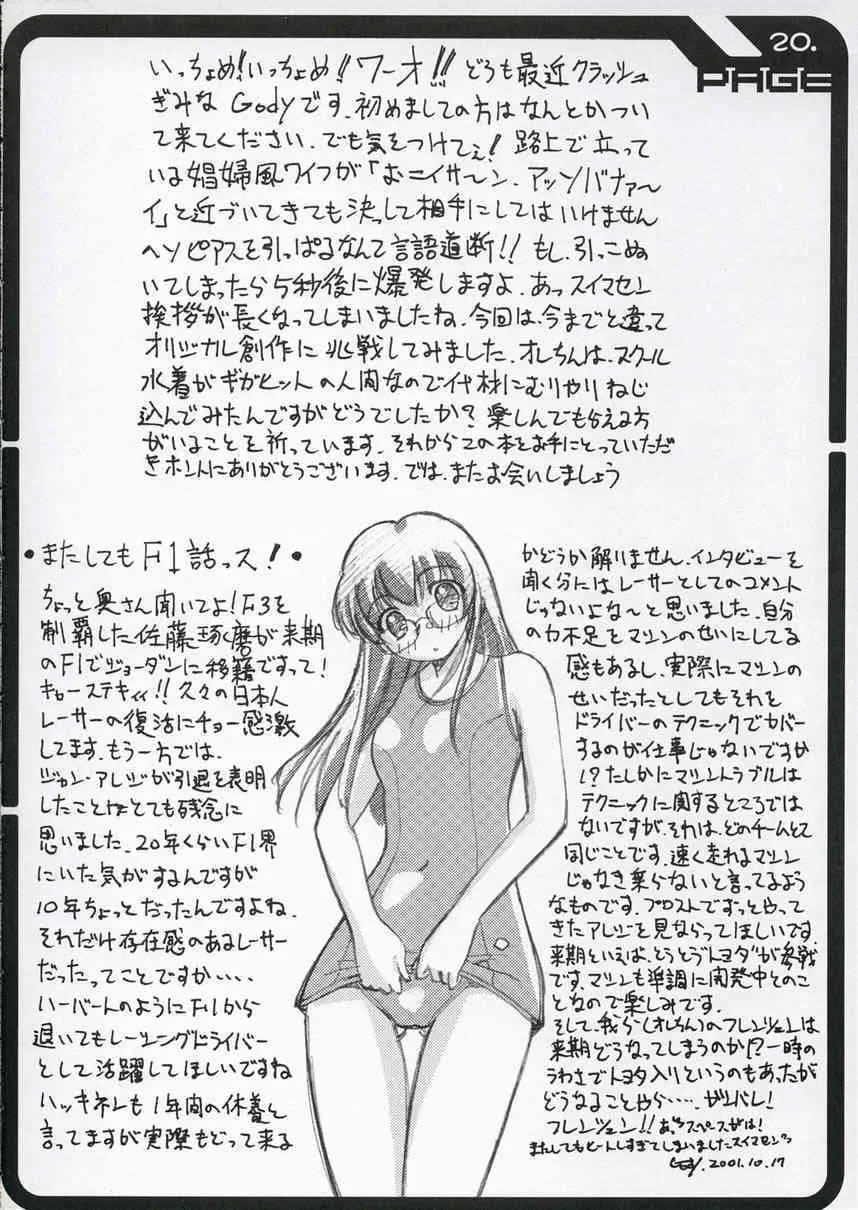 20.
PAGE
いっちょめ!いっちょめ!!ワーオ!!!どうも最近クラッシュ
ぎみなGodyです.初めましての方はなんとかつい
て来てください.でも気をつけてぇ!路上で立って
いる娼婦風ワイフが「おニイサ〜ン.アッソバナァ〜
イ」と近づいてきても決っして相手にしてはいけません
ヘソピアスを引っぱるなんて言語道断!!もし.引っこぬ
いてしまったら5秒後に爆発しますよ.あっスイマセン
挨拶が長くなってしまいましたね.今回は.今までと違って
オリジナル創作に挑戦してみました.オレちんは.スクール
水着がギガヒットの人間なので代材にむりやりねじ
込んでみたんですがどうでしたか?楽しんでもらえる方
がいることを祈っています.それからこの本をお手にとっていただ
きホントにありがとうございます.では.またお会いしましょう
•またしてもF1話っス!•
ちょっと奥さん聞いてよ!F3を
制覇した佐藤琢磨が来期
のF1でジョーダンに移籍ですって!
キャーステキィィ!!久々の日本人
レーサーの復活にチョー感激
してます.もう一方では.
ジャン・アレジが引退を表明
したことがとても残念に
思いました.20年くらいF1界
にいた気がするんですが
10年ちょっとだったんですよね.
それだけ存在感のあるレーサー
だったってことですか・・・・
ハーバートのようにF1から
退いてもレーシングドライバー
として活躍してほしいですね
ハッキネンも1年間の休養と
言ってますが実際もどって来る
かどうか解りません.インタビューを
聞く分にはレーサーとしてのコメント
じゃないよな〜と思いました.自分
の力不足をマシンのせいにしてる
感もあるし.実際にマシンの
せいだったとしてもそれを
ドライバーのテクニックでカバー
するのが仕事じゃないですか
!?たしかにマシントラブルは
テクニックに関するところでは
ないですが.それは.どのチームとて
同じことです.速く走れるマシン
じゃなき乗らないと言ってるよう
なものです.プロストでずっとやって
きたアレジを見ならってほしいです.
来期といえば.とうとうトヨダが参戦
です.マシンも準調に開発中とのこ
となので楽しみです.
そして.我ら(オレちん)のフレンツェンは
来期どうなってしまうのか!?一時の
うわさでトヨタ入りというのもあったが
どうなることやら・・・・.ガンバレ!
フレンツェン!!あっスペースがは!
またしてもヒートしすぎてしまいましたスイマセン
Gody.2001.10.17